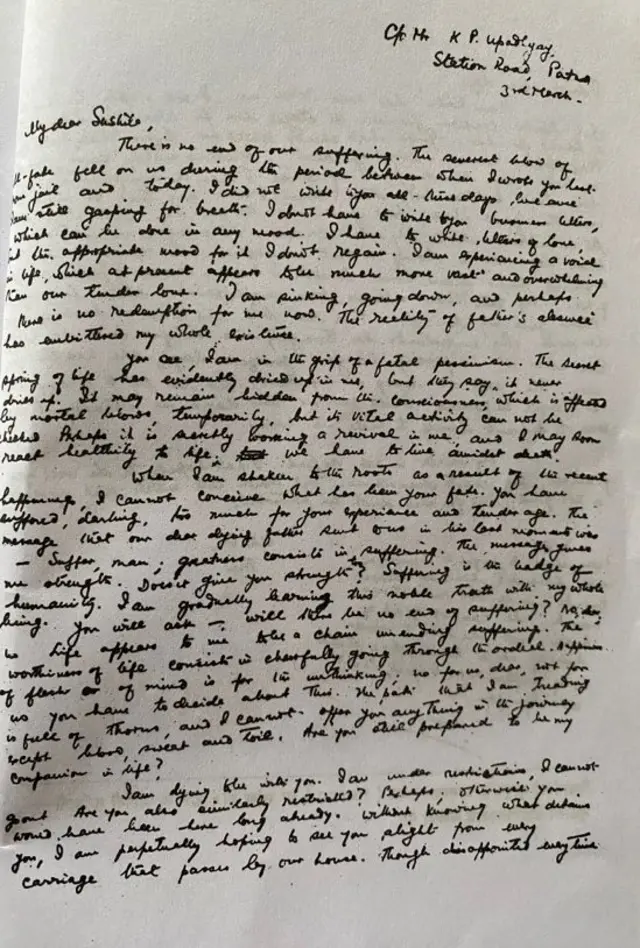 C/o Mr K P. Upadhyay.
Station Road, Patna
3rd March.
My dear Sushila,
There is no end of our suffering. The severest blow of
ill-fate fell on us during the period between when I wrote you last
jail and today. I did not write to you all these days,
still gasping for breath. I don't have to write to you business letters,
which can be done in any mood. I have to write letters of love,
the appropriate mood for it I don't regain. I am experiencing a void
in life, which at present appears to be much more vast and overwhelming
than our tender love. I am sinking, going down, and perhaps
there is no redemption for me now. The reality of father's absence
has embittered my whole existence.
You see, I am in the grip of a fatal pessimism. The secret
spring of life has evidently dried up in me, but they say, it never
dries up. It may remain hidden from the consciousness, which is affected
by mortal blows, temporarily, but its vital activity can not be
checked Perhaps it is secretly working a revival in me, and I may soon
react healthily to life, we have to live amidst death.
When I am shaken to the roots as a result of the recent
happenings, I cannot conceive what has been your fate. You have
suffered, darling, too much for your experience and tender age. The
message that our dear dying father sent to us in his last moments was
— Suffer, man; greatness consists in suffering. The message gives
me strength. Does it give you strength? Suffering is the badge of
humanity. I am gradually learning this noble truth with my whole
being. You will ask — will there be no end of suffering? No, dear,
Life appears to me to be a chain unending suffering. The
worthiness of life consists in cheerfully going through the ordeal. Happiness
of flesh or of mind is for the unthinking; no for us, dear, not for
us you have to decide about this. The path that I am treading
is full of thorns, and I cannot offer you anything in the journey
except blood, sweat and toil. Are you still prepared to be my
companion in life?
I am dying to be with you. I am under restrictions, I cannot
go out Are you also similarly restricted? Perhaps; otherwise you
would have been here long already. Without knowing what detains
you, I am perpetually hoping to see you alight from every
carriage that passes by our house. Though disappointed every time